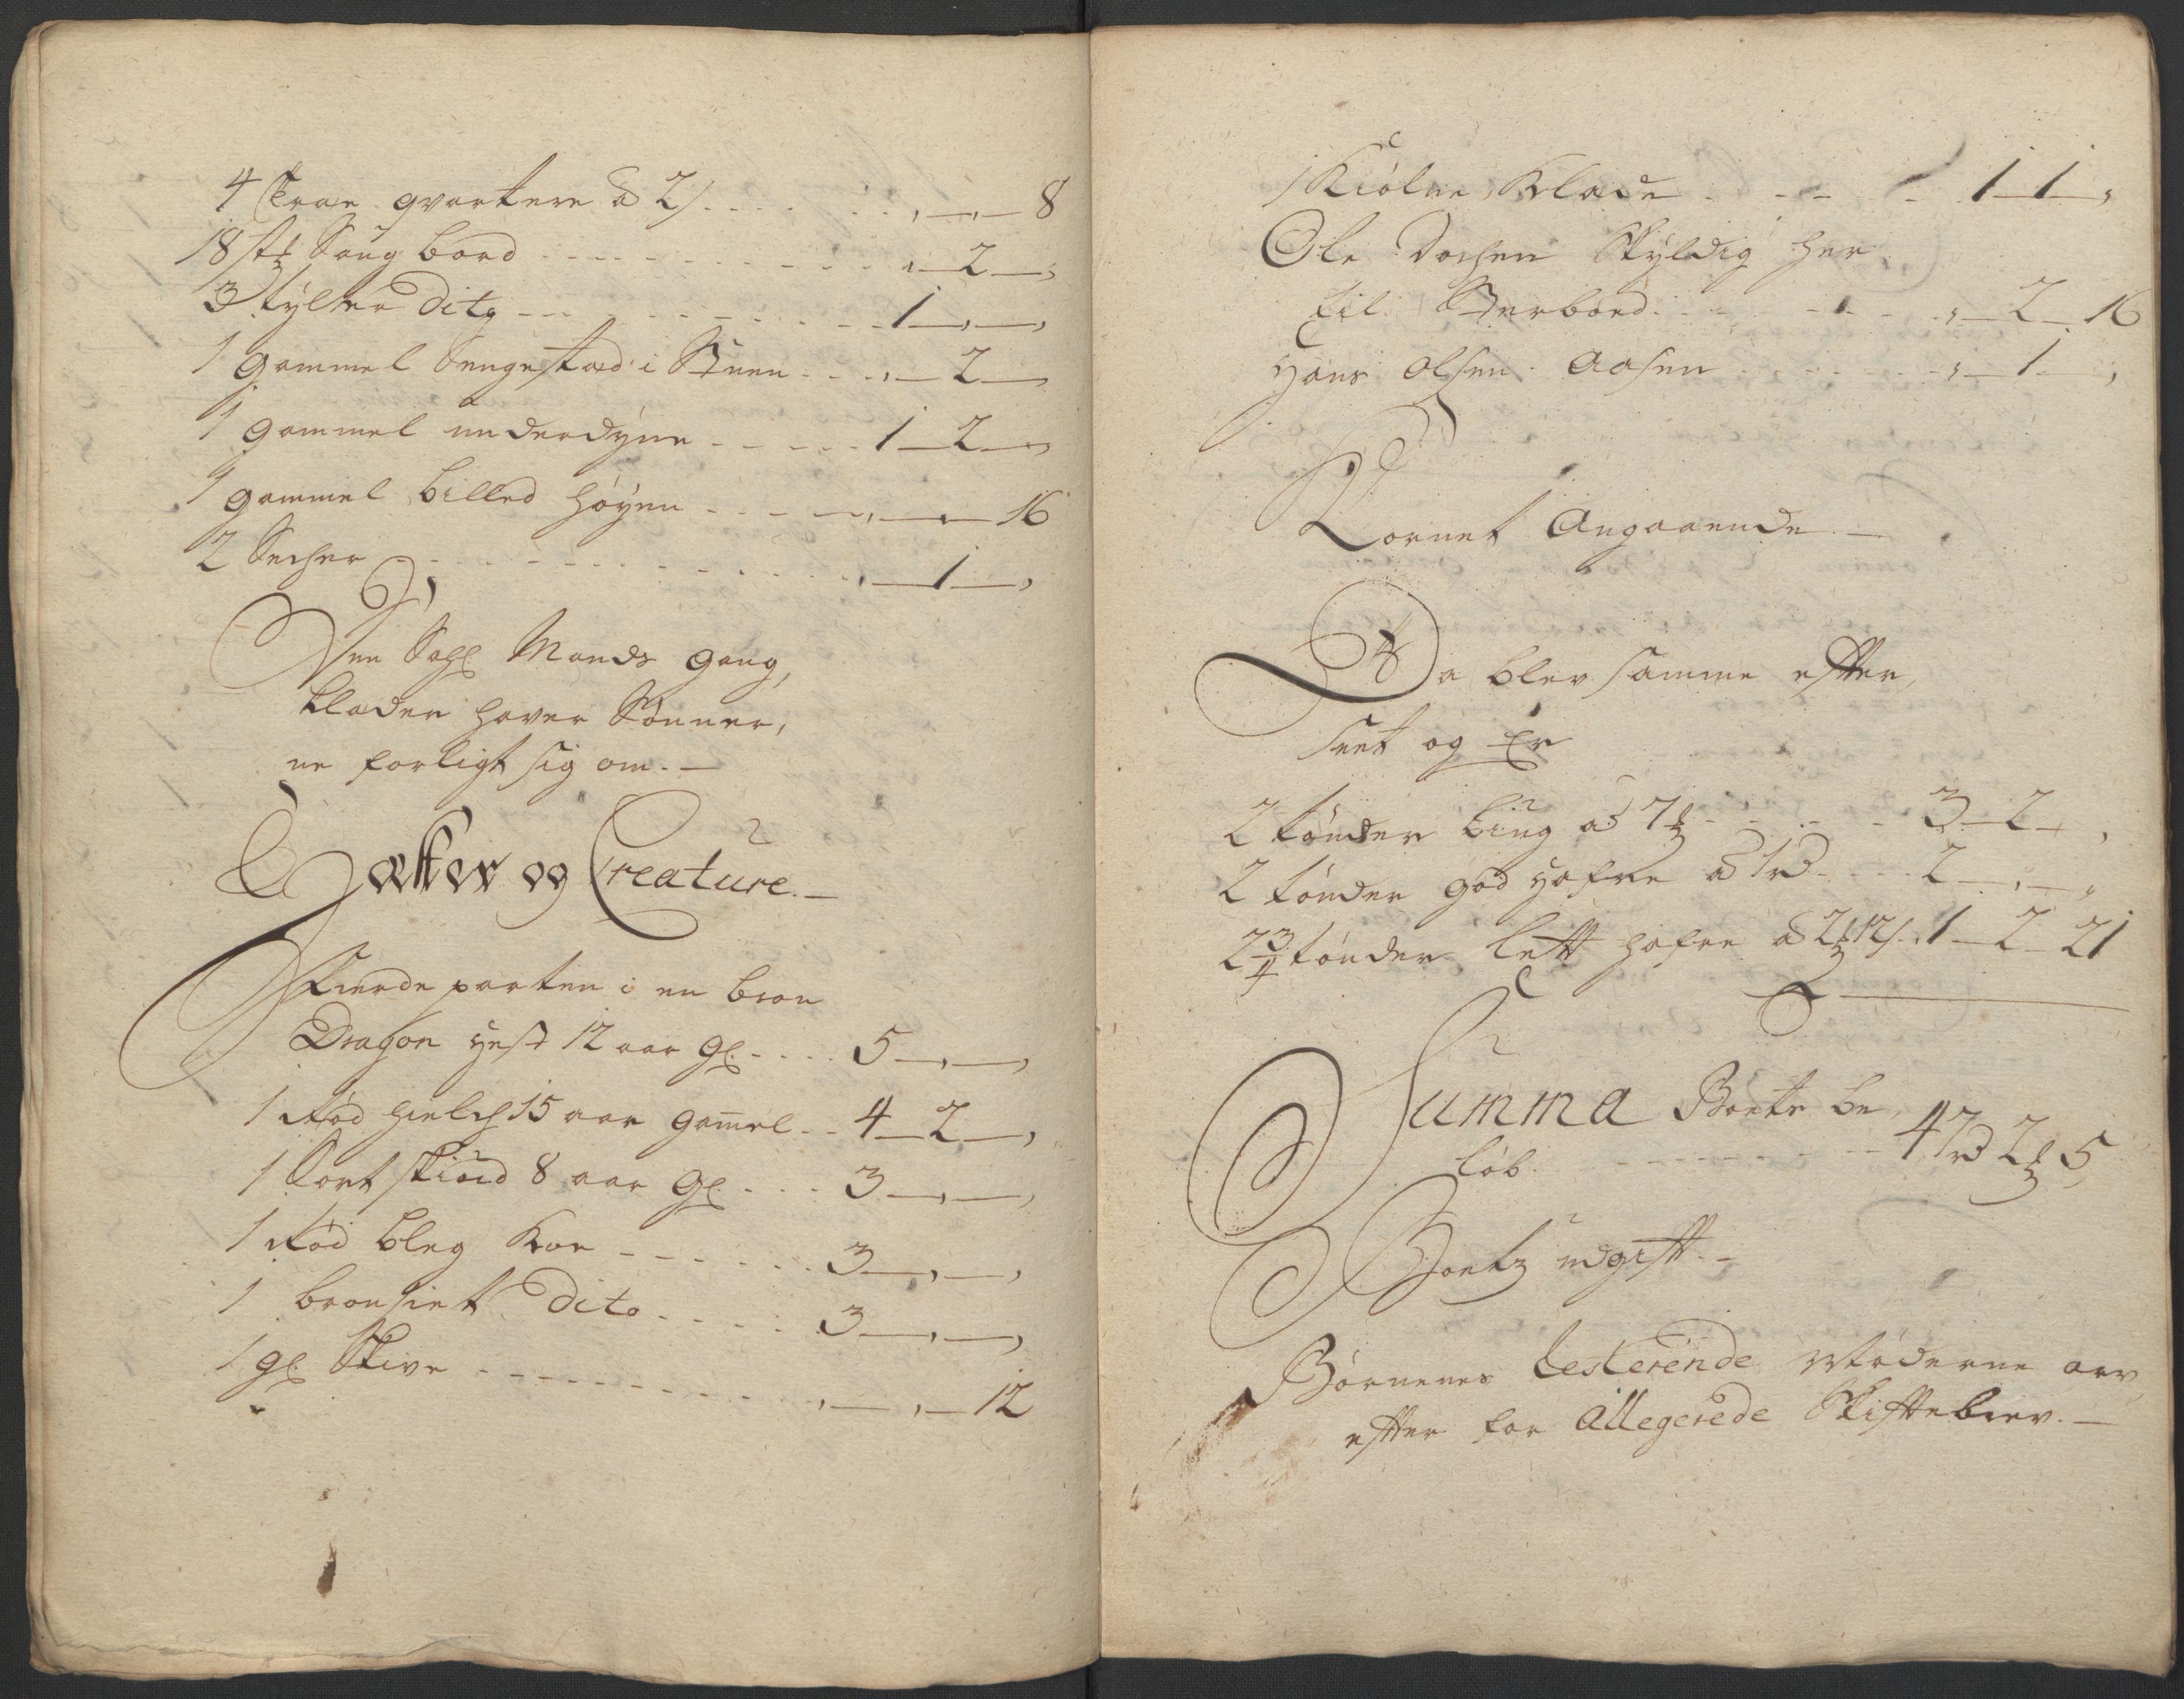 4 Træe qvartere à 2 s. . . . . . . , — , — 8
18 st: Saug bord - - - - - - - - , — 2 — ,
3 Tylter Dito - - - - - - - 1 — , — ,
1 gammel Sengestæd i Stuen - - - , — 2 — ,
1 gammel underdÿne - - - - - 1 — 2 — ,
1 gammel billed høyen - - - - , — , — 16
2 Secher - - - - - - - - - , — 1 — ,
Den Sahl Mands gang,
klæder haver Sønner,
ne forligt sig om. —
Hæster og Creature. —
Fierde parten i en bron
Dragon Hest 12 aar gl. - - - 5 — , — ,
1 Rød hielch 15 aar gam̄el - - 4 — 2 — ,
1 Sort skiud 8 aar gl. - - - 3 — , — ,
1 Rød bleg Koe - - - - - - 3 — , — ,
1 bronsiet Dito - - - - - 3 — , — ,
1 gl. Skive - - - - - - - - - , — , — 12
1 Kiolne Klæde - - - - 1 — 1 — ,
Ole Dochen Skÿldig her
til Sterboed - - - - - , — 2 — 16
Hans Olsen Aasen - - - - , — 1 — ,
Kornet Angaaende —
Da blev samme efter,
seet og Er
2 tønder biug à 7 - - - - 3 — 2 — ,
2 tønder god Hafre à 1 rd - - - 2 — , — ,
2 3/4 tønder lett hafre à 2 12 s. 1 — 2 — 21
Summa Boets be
løb - - - - - - - - 47 rd 2 5
Boets udgift. —
Børnenes Resterende Møderne arv
efter for Allegerede Skiftebrev. —